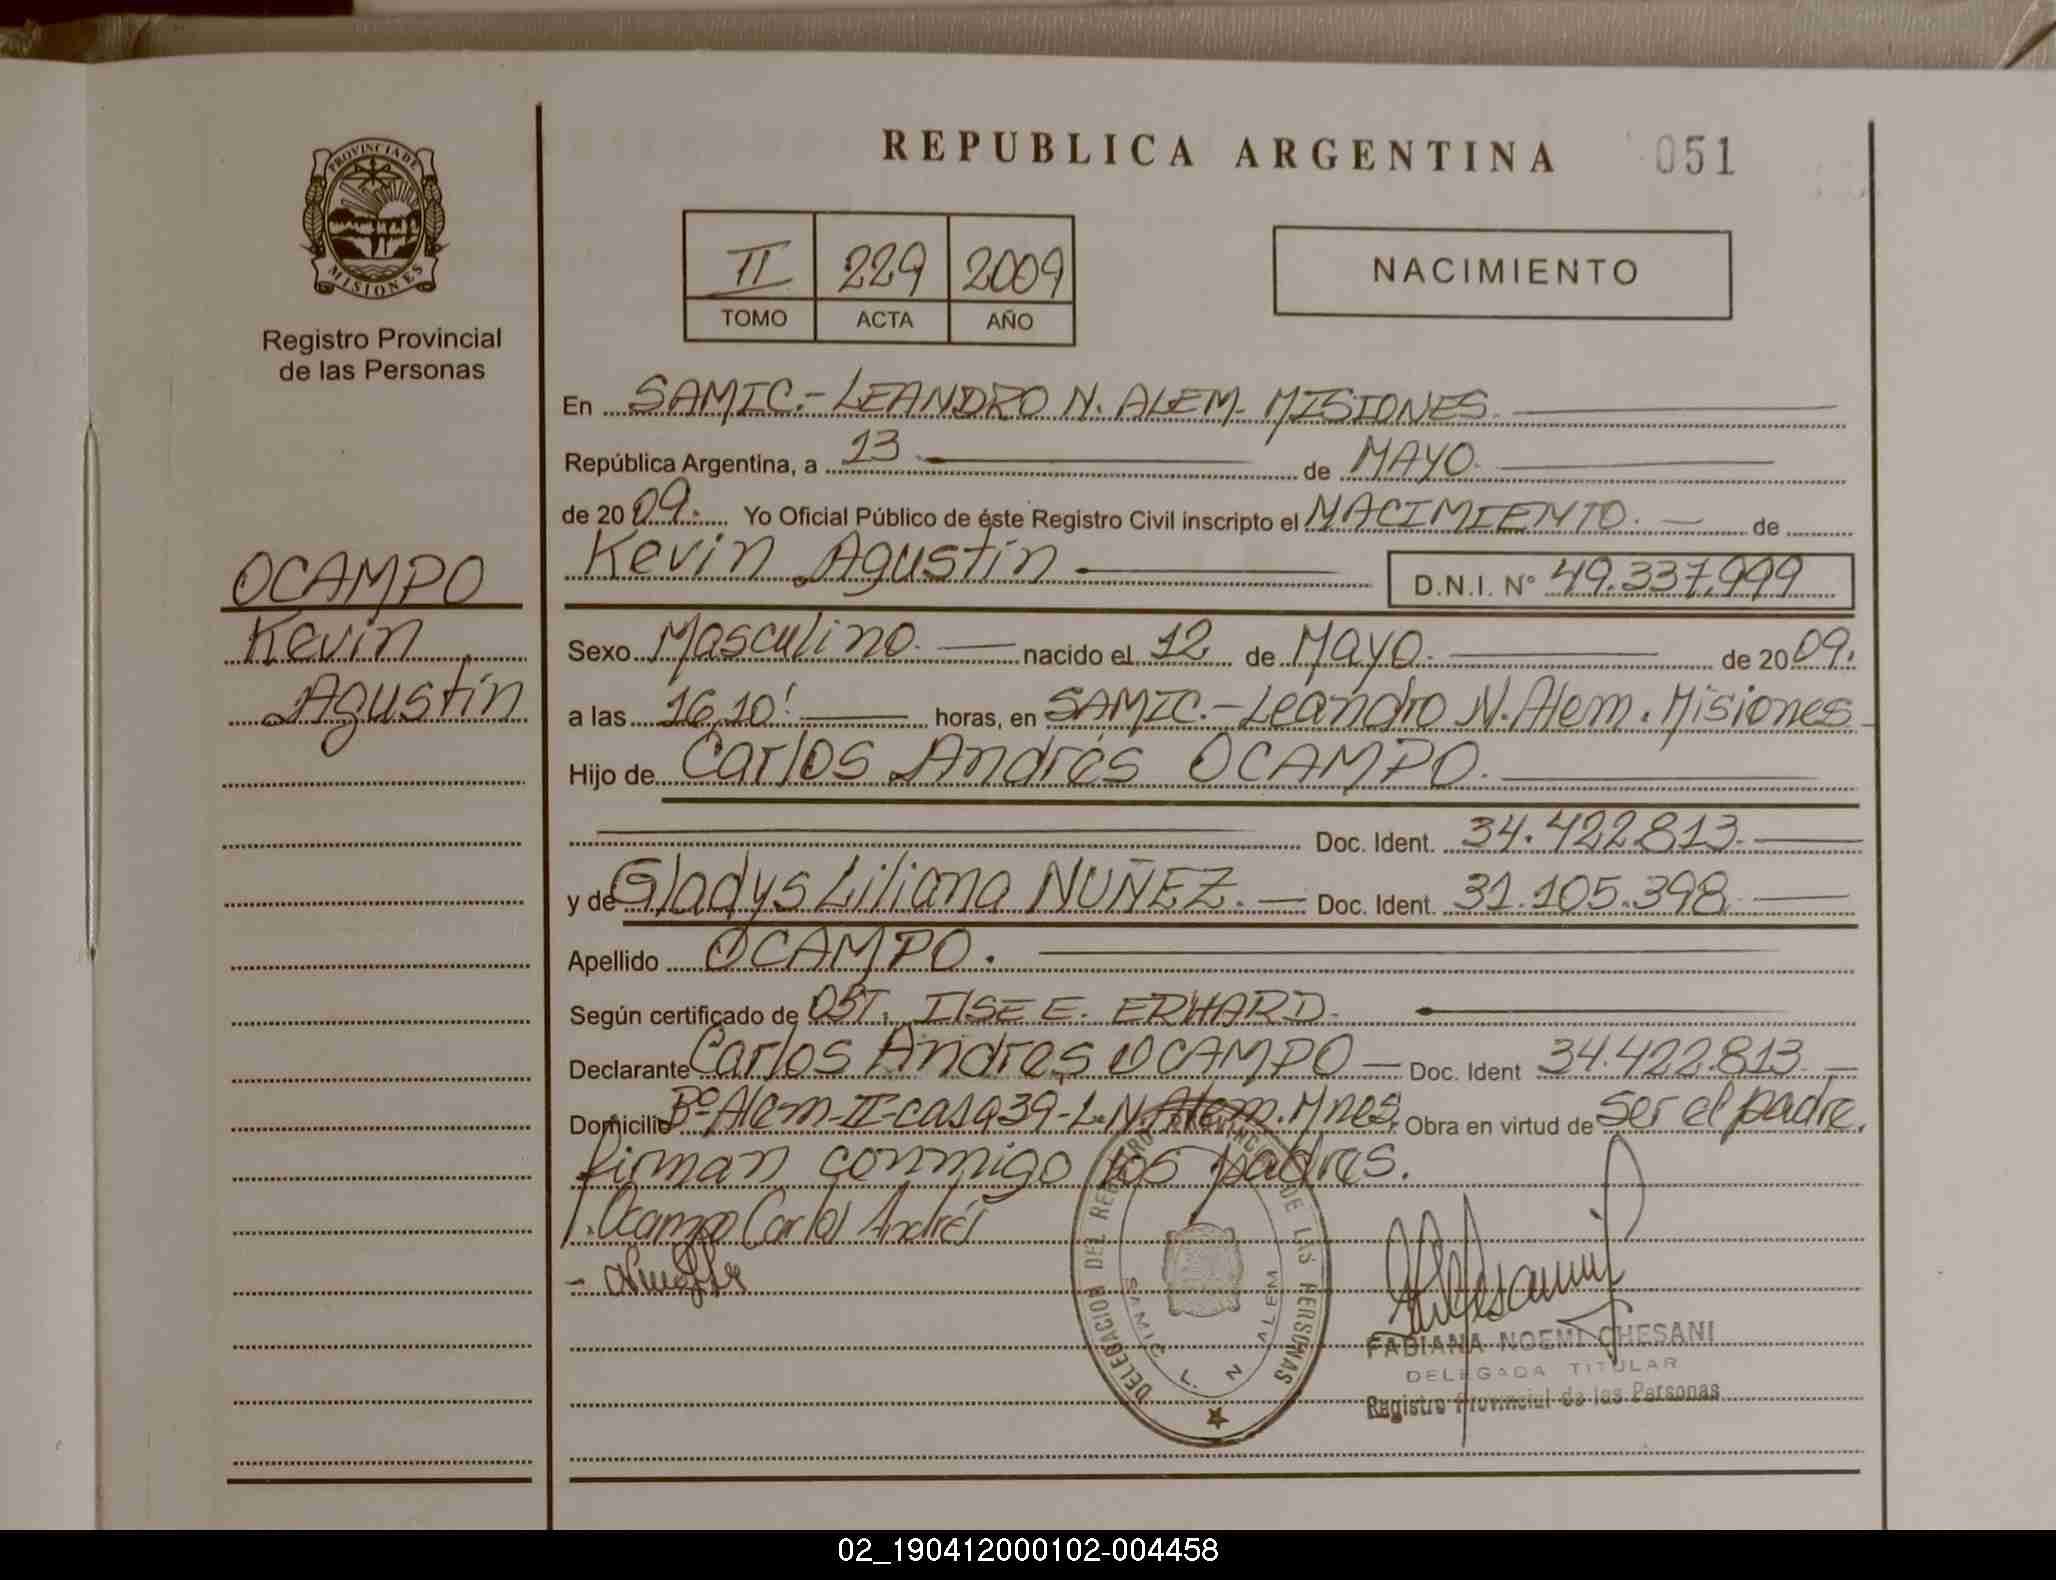 REPUBLICA ARGENTINA 051
PROVINCIA DE
MISIONES
Registro Provincial
de las Personas
II 229 2009
TOMO ACTA AÑO
NACIMIENTO
En SAMIC.- LEANDRO N. ALEM- MISIONES.
República Argentina, a 13 de MAYO.
de 2009. Yo Oficial Público de éste Registro Civil inscripto el NACIMIENTO. de
Kevin Agustín D.N.I. N° 49.337.999
OCAMPO
Kevin
Agustín
Sexo Masculino. nacido el 12 de Mayo. de 2009.
a las 16,10' horas, en SAMIC.- Leandro N. Alem. Misiones
Hijo de Carlos Andrés OCAMPO.
Doc. Ident. 34.422.813.
y de Gladys Liliana NUÑEZ. Doc. Ident. 31.105.398
Apellido OCAMPO.
Según certificado de OBT. ILSE E. ERHARD.
Declarante Carlos Andres OCAMPO Doc. Ident 34.422.813
Domicilio Bº Alem-II-casa 39-L.N. Alem. Mnes. Obra en virtud de ser el padre.
firman conmigo los padres.
Ocampo Carlos Andrés
DELEGACION DEL REGISTRO PROVINCIAL DE LAS PERSONAS
SAMIC L. N ALEM
FABIANA NOEMI CHESANI
DELEGADA TITULAR
Registro Provincial de las Personas
02_190412000102-004458